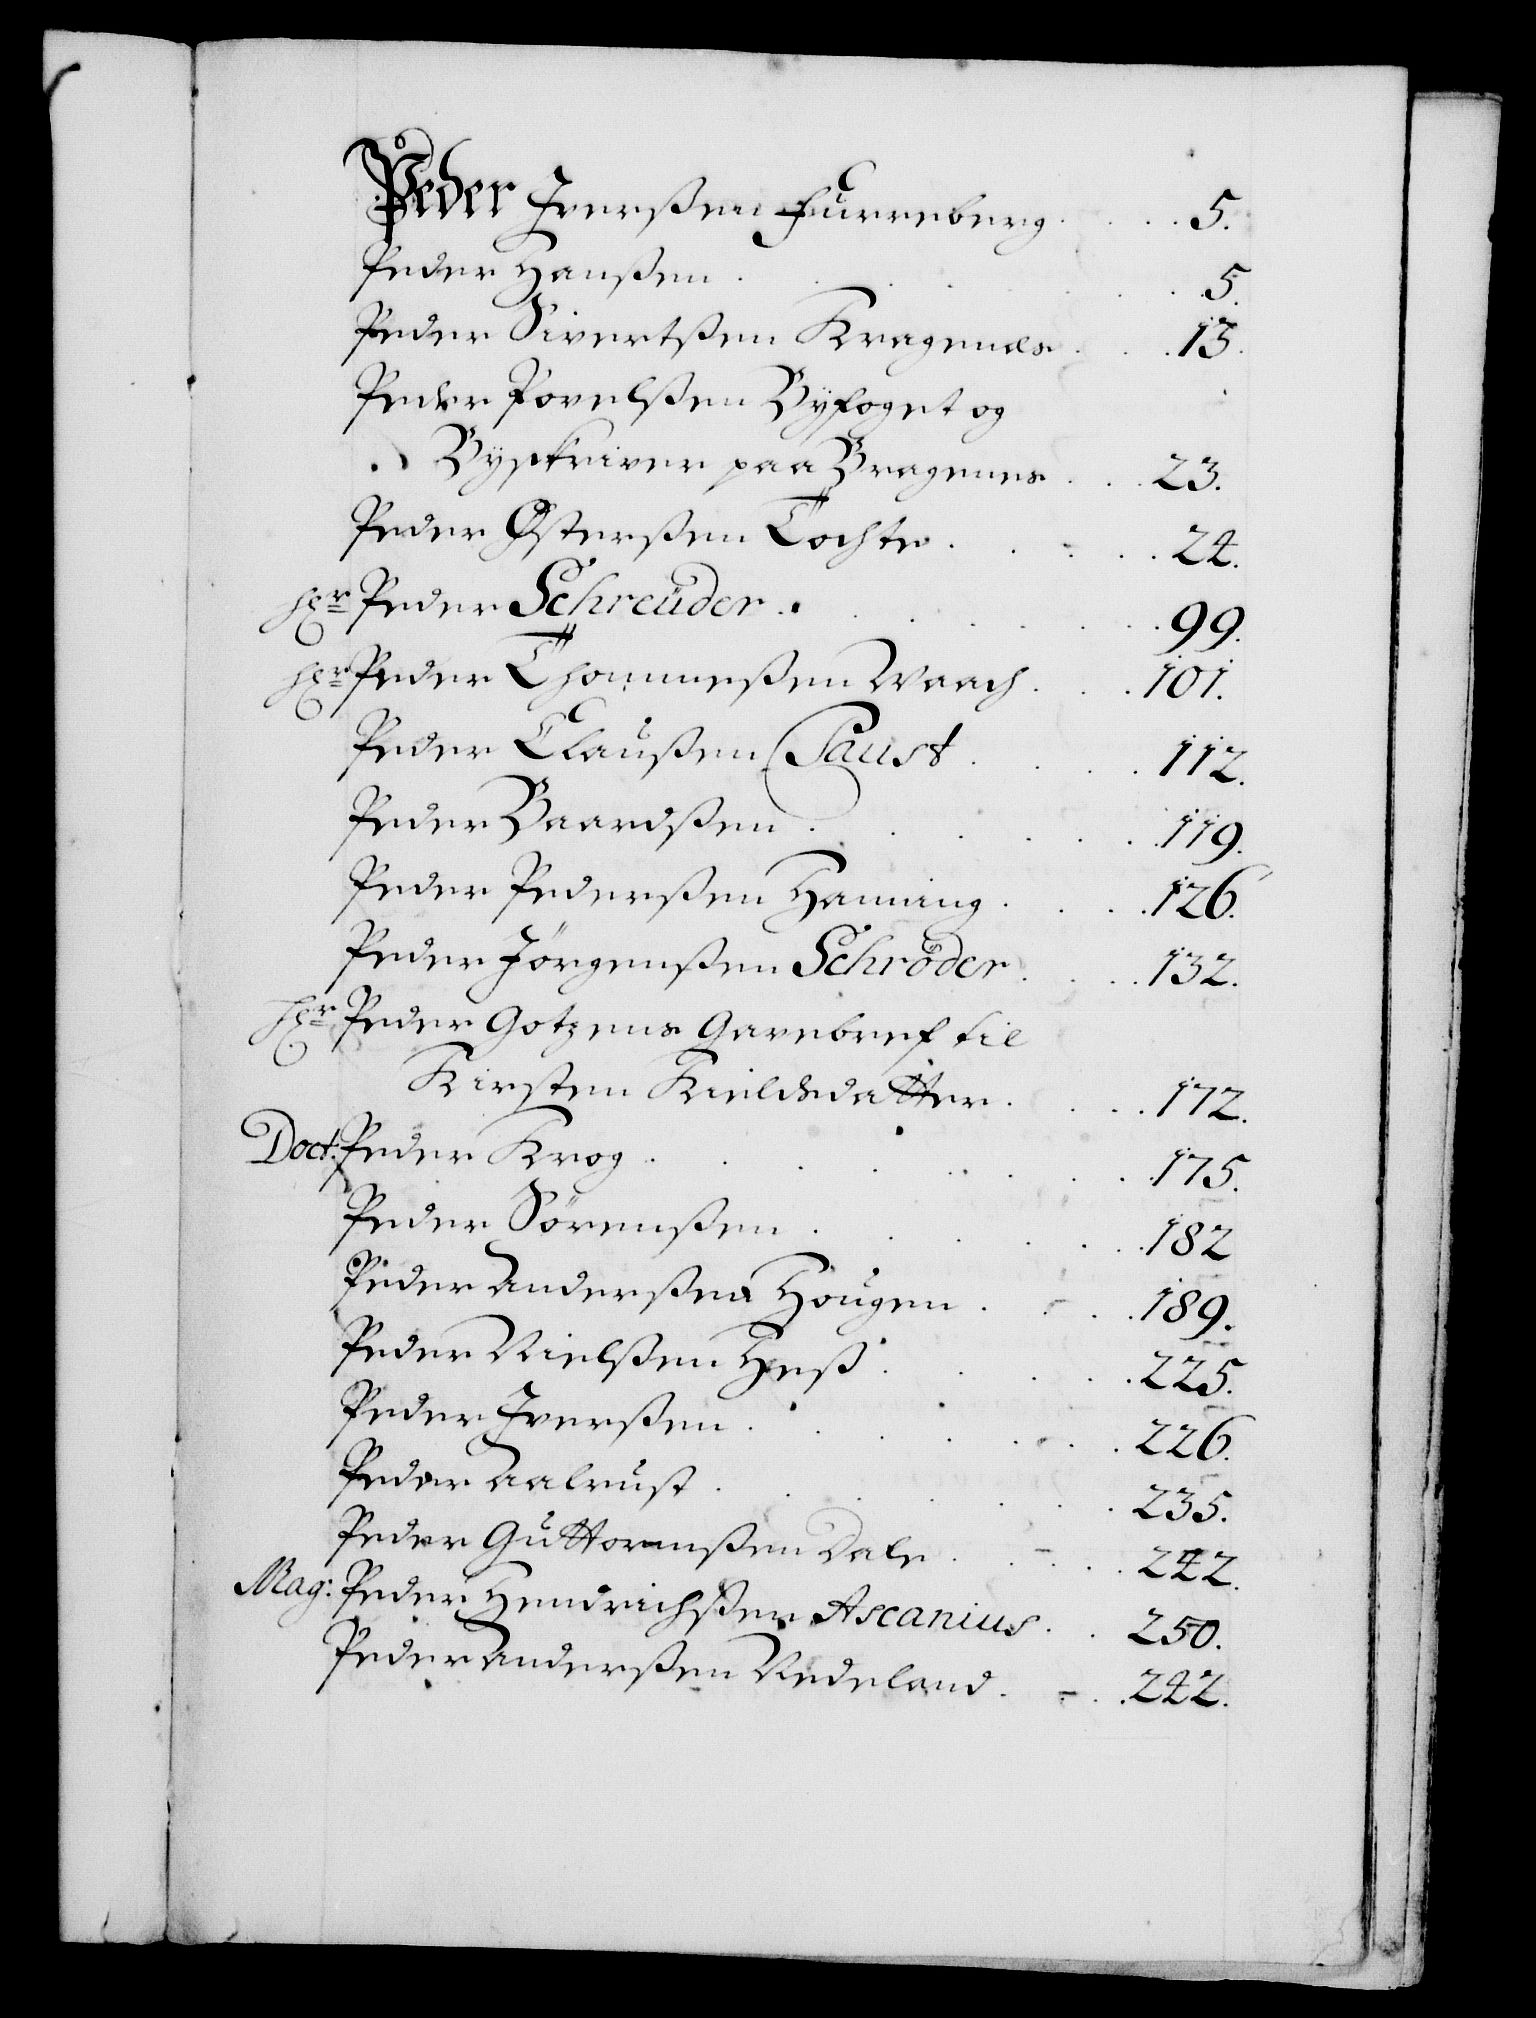 Peder Iverßen Furreberg . . . 5.
Peder Hanßen . . . 5.
Peder Sivertßen Kragenæs . . . 13.
Peder Povelßen Byfoget og
Byskriver paa Bragenes . . . 23.
Peder Østerßen Tochte . . . 24.
Hr Peder Schreüder . . . 99.
Hr Peder Thommeßen Waach . . . 101.
Peder Claußen Paust . . . 112.
Peder Baardßen . . . 119.
Peder Pederßen Haming . . . 126.
Peder Jörgenßen Schröder . . . 132.
Hr Peder Gotzens Gavebref til
Kirsten Kieldsdatter . . . 172.
Doct: Peder Krog . . . 175.
Peder Sörenßen . . . 182
Peder Anderßen Hougen . . . 189.
Peder Nielßen Heß . . . 225.
Peder Iverßen . . . 226.
Peder Aalrust . . . 235.
Peder Guttormßen Dale . . . 242.
Mag: Peder Hendrichßen Ascanius . . 250.
Peder Anderßen Nedeland . . . 242.